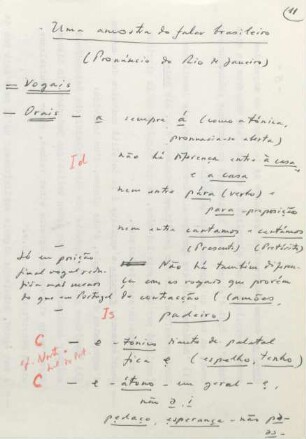 (11
- Uma amostra do falar brasileiro
(Pronúncia do Rio de Janeiro)
= Vogais
- Orais - a sempre á (como a tónica,
pronuncia-se aberta)
Id não há diferença entre à casa
e a casa
nem entre pára (verbo) e
para - preposição
nem entre cantamos - cantámos
(Presente) (Pretérito)
Só em posição
final vogal redu-
zida mas menos
do que em Portugal
Não há também diferen-
ça em as vogais que provêm
de contracção (
padeiro)
Is
C - e - tónico diante de palatal
fica ẹ (espelho, tenho)
C - e - átono - em geral - ẹ,
não ə, i
pedaço, esperança - não pə
əs-